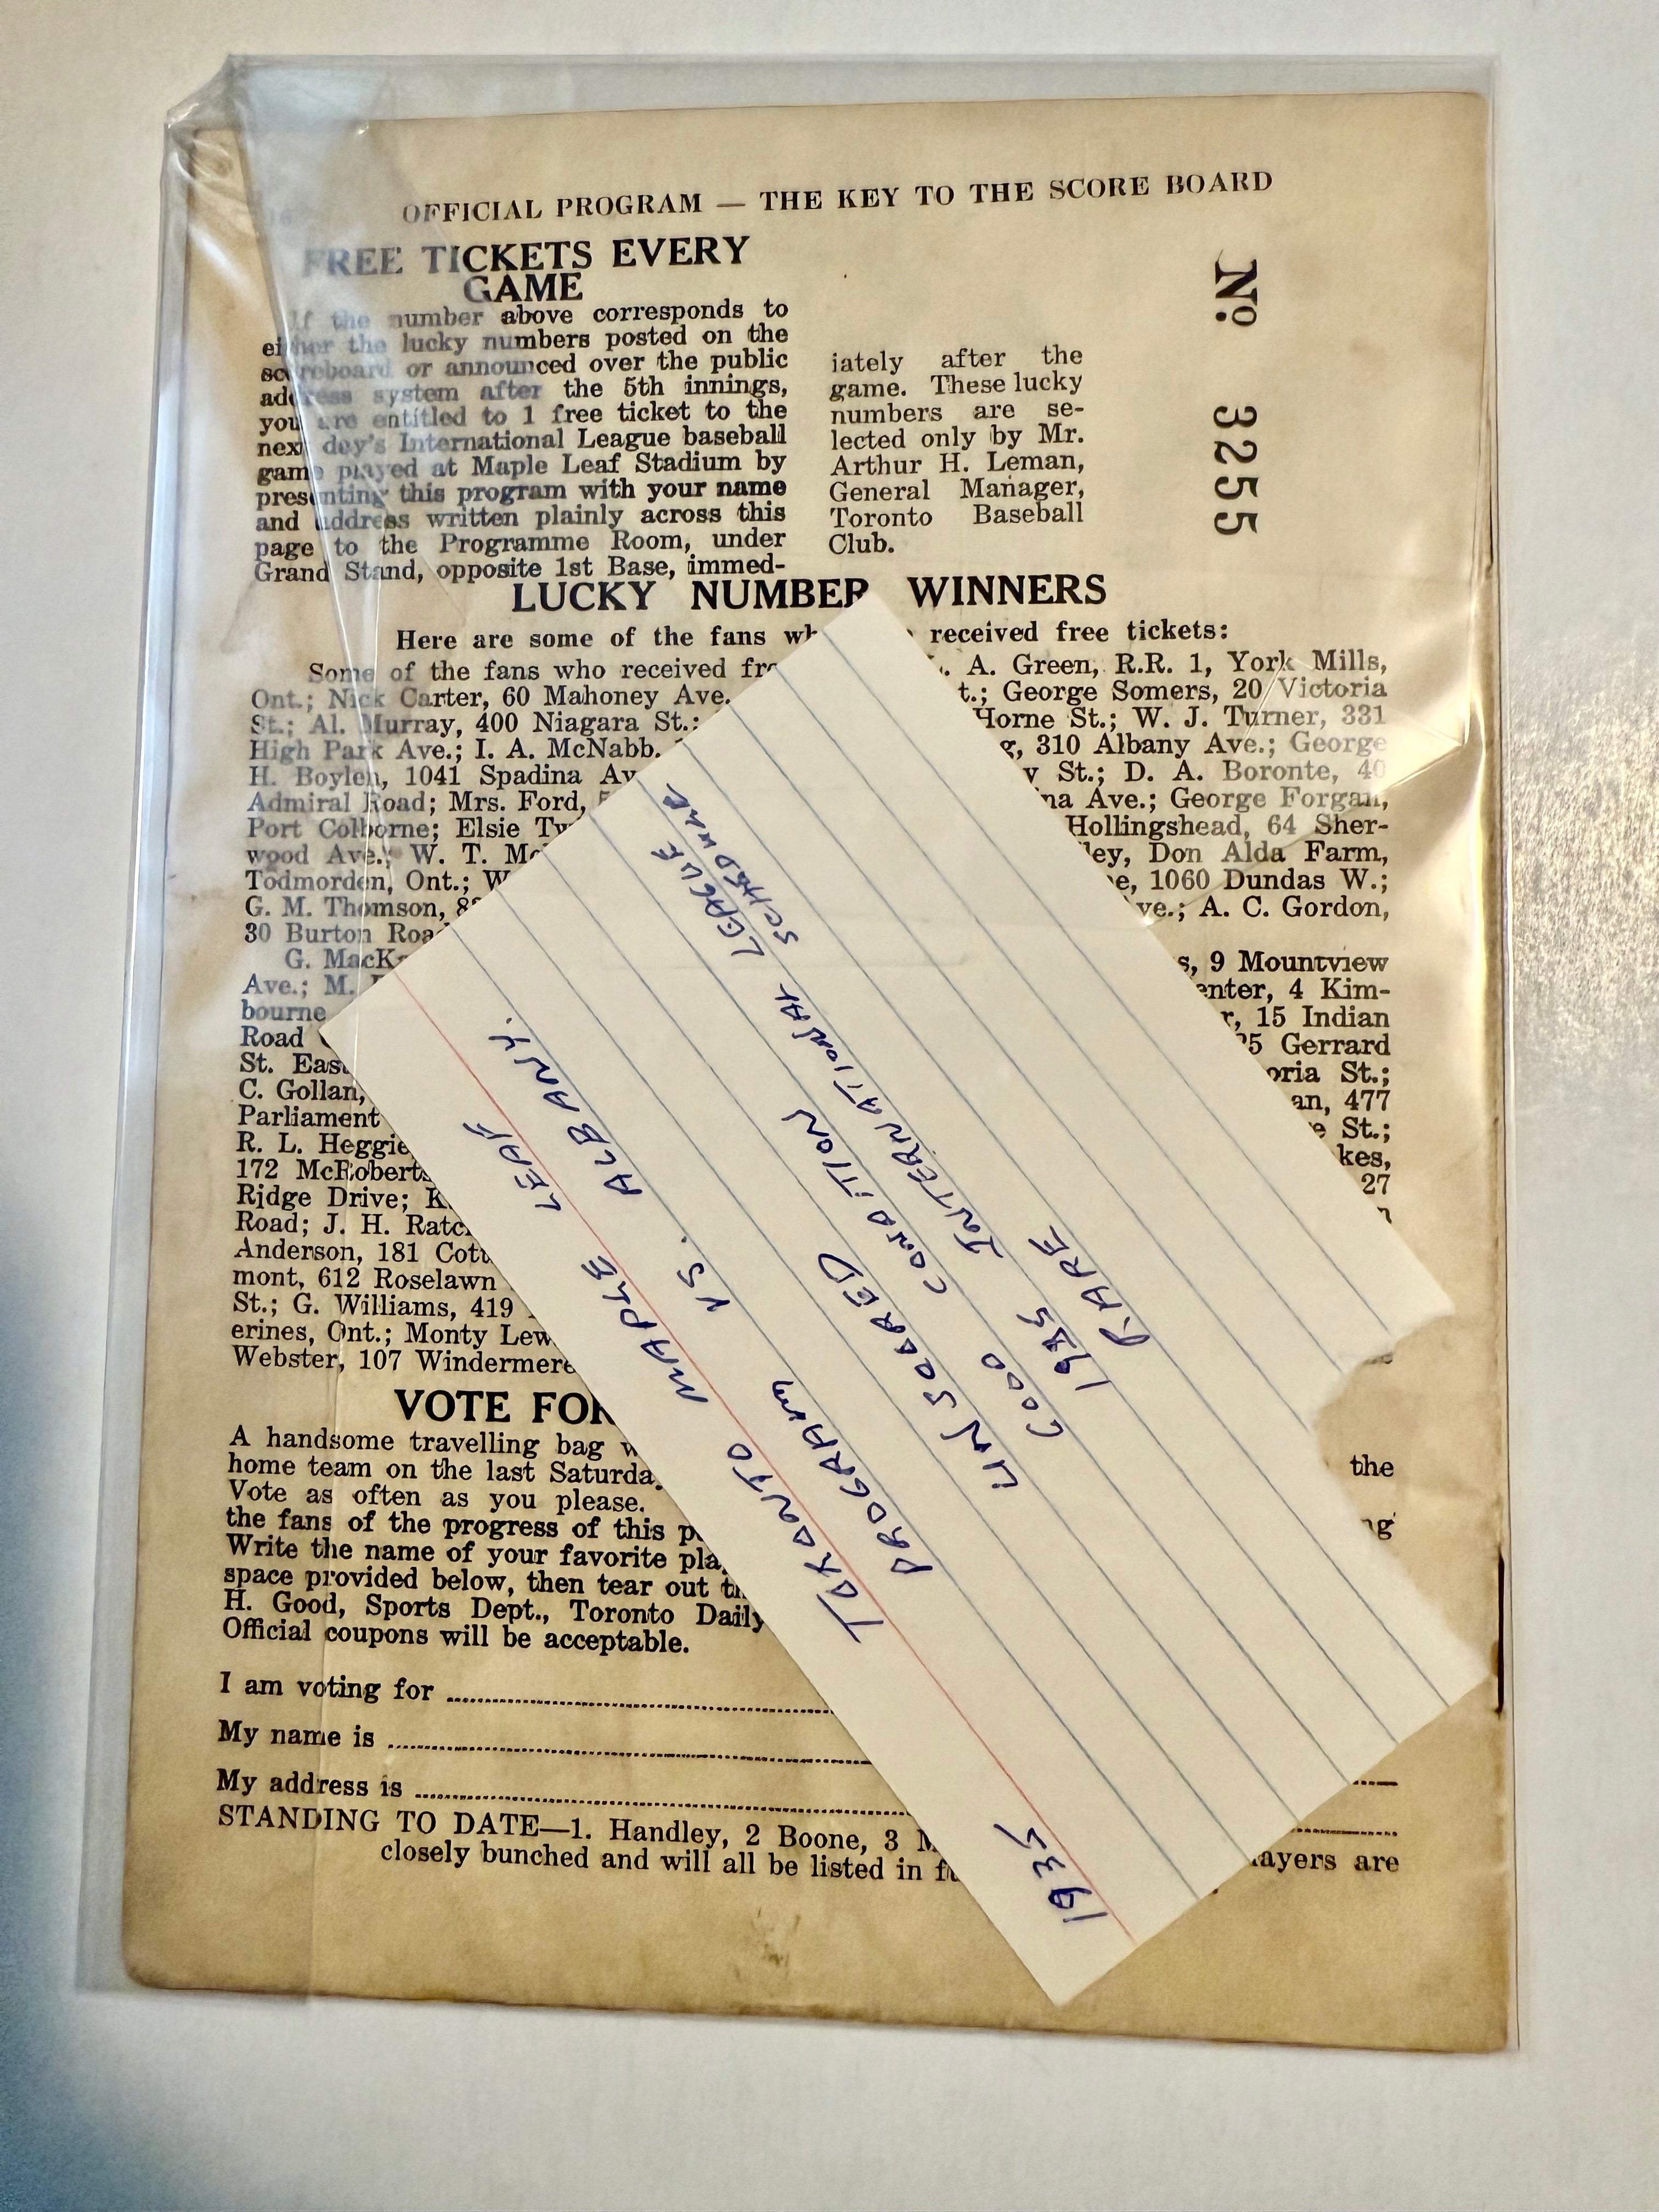 OFFICIAL PROGRAM — THE KEY TO THE SCORE BOARD
FREE TICKETS EVERY
GAME
If the number above corresponds to
either the lucky numbers posted on the
scoreboard or announced over the public
address system after the 5th innings,
you are entitled to 1 free ticket to the
next day's International League baseball
game played at Maple Leaf Stadium by
presenting this program with your name
and address written plainly across this
page to the Programme Room, under
Grand Stand, opposite 1st Base, immed-
iately after the
game. These lucky
numbers are se-
lected only by Mr.
Arthur H. Leman,
General Manager,
Toronto Baseball
Club.
No. 3255
LUCKY NUMBER WINNERS
Here are some of the fans received free tickets:
Some of the fans who received A. Green, R.R. 1, York Mills,
Ont.; Nick Carter, 60 Mahoney Ave. George Somers, 20 Victoria
St.; Al. Murray, 400 Niagara St.; Horne St.; W. J. Turner, 331
High Park Ave.; I. A. McNabb. 310 Albany Ave.; George
H. Boylen, 1041 Spadina St.; D. A. Boronte, 40
Admiral Road; Mrs. Ford, Ave.; George Forgan,
Port Colborne; Elsie Hollingshead, 64 Sher-
wood Ave.; W. T. Don Alda Farm,
Todmorden, Ont.; 1060 Dundas W.;
G. M. Thomson, A. C. Gordon,
30 Burton
G. 9 Mountview
Ave.; M. 4 Kim-
bourne 15 Indian
Road Gerrard
St. St.;
C. Gollan, 477
Parliament St.;
R. L. Heggie
172 27
Ridge Drive;
Road; J. H.
Anderson, 181
mont, 612 Roselawn
St.; G. Williams, 419
erines, Ont.; Monty
Webster, 107 Windermere
VOTE FOR
A handsome travelling bag
home team on the last
Vote as often as you please. the
the fans of the progress of this
Write the name of your favorite
space provided below, then tear out
H. Good, Sports Dept., Toronto Daily
Official coupons will be acceptable.
I am voting for
My name is
My address is
STANDING TO DATE—1. Handley, 2 Boone, 3 are
closely bunched and will all be listed in
1935
TORONTO MAPLE LEAF
PROGRAM VS. ALBANY.
UNSCORED
GOOD CONDITION
1935 INTERNATIONAL LEAGUE
SCHEDULE
RARE